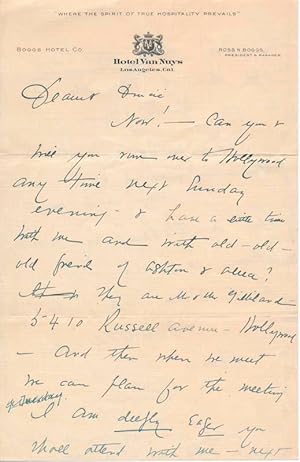 "WHERE THE SPIRIT OF TRUE HOSPITALITY PREVAILS"
BOGGS HOTEL CO.
ROSS N. BOGGS,
PRESIDENT & MANAGER
Hotel Van Nuys
Los Angeles, Cal.
Dearest
Now! – Can you &
will you run over to Hollywood
any time next Sunday
evening – & have a little time
with me and with old – old –
old friend of Ashton &
They are Mr & Mrs
5410 Russell Avenue – Hollywood
– And then when we meet
we can plan for the meeting
I am deeply eager you
shall attend with me – next